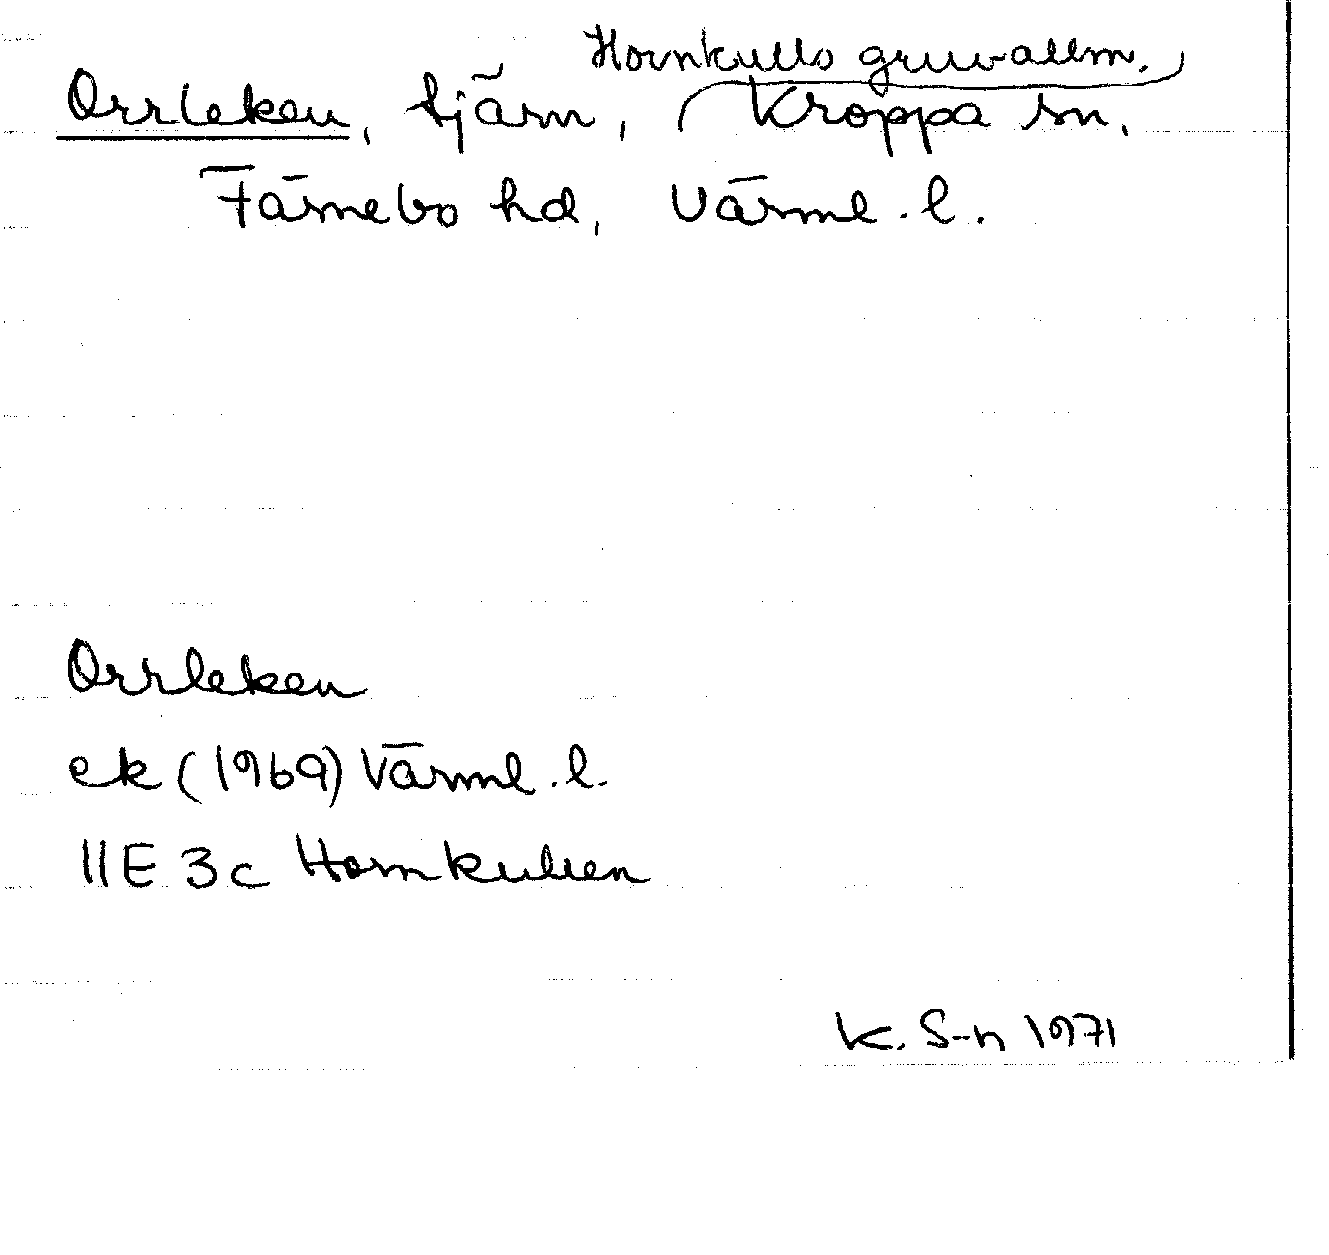 Hornkulls gruvallm.
Orrleken, tjärn, Kroppa sn.
Färnebo hd, Värml. l.
Orrleken
ek (1969) Värml. l.
11E 3c Hornkullen
K. S-n 1971